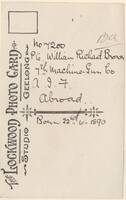 THE LOCKWOOD PHOTO CARD
STUDIO GEELONG
No 7200
Pte William Richard Brown
7th Machine Gun Co
A I F
Abroad
Born 22nd 6. 1890